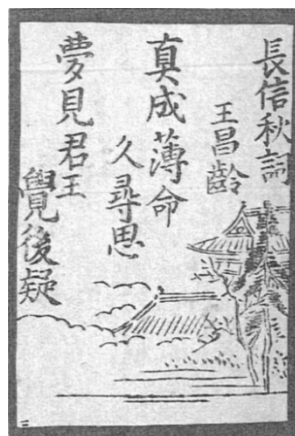 長信秋詞
王昌齡
真成薄命
久尋思
夢見君王
覺後疑
三